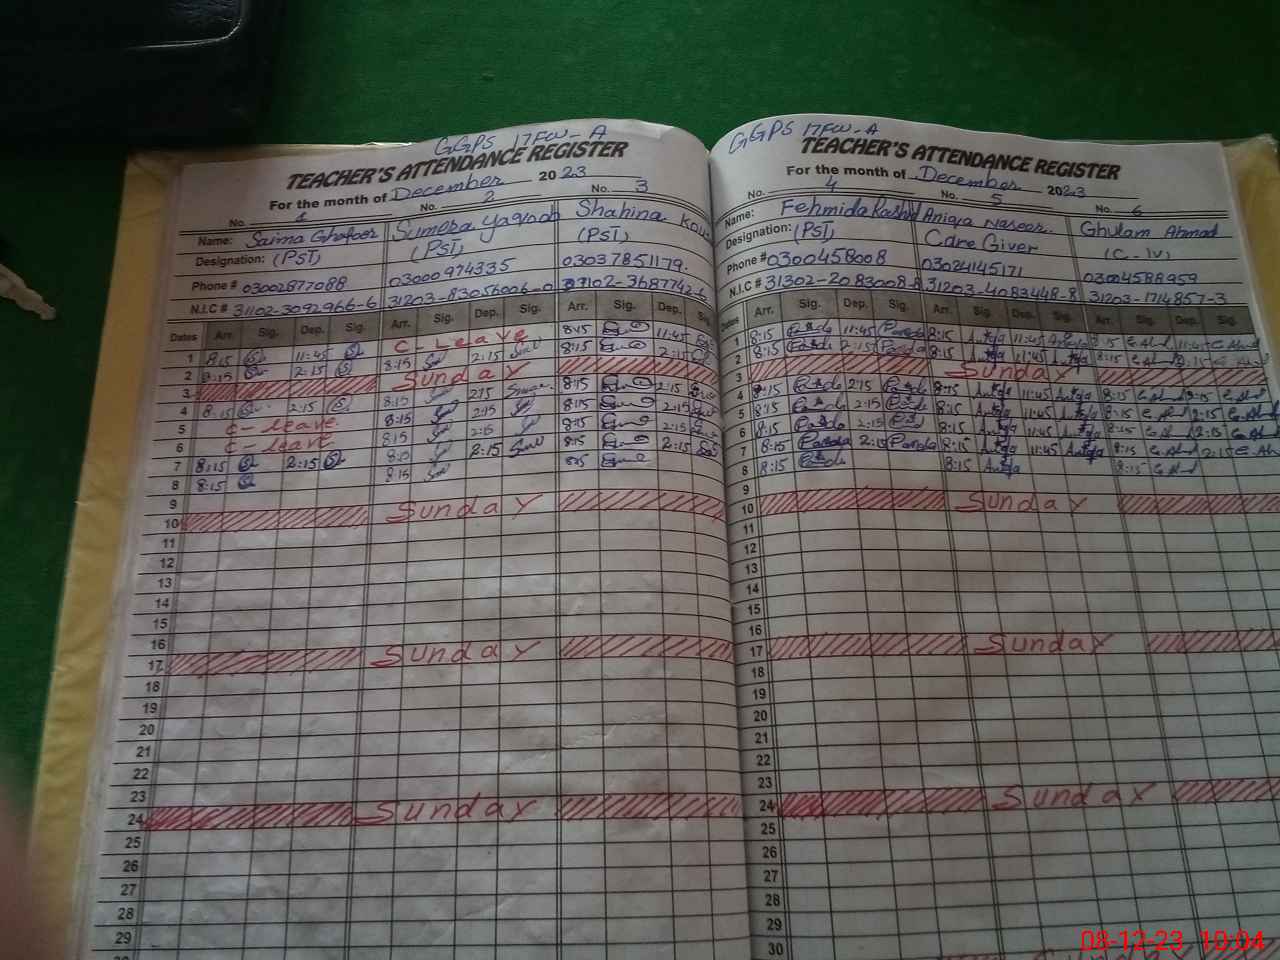 GGPS 17FW-A
TEACHER'S ATTENDANCE REGISTER
For the month of December 2023
No. 1 No. 2 No. 3
Name: Saima Ghafoor Sumera Yaqoob Shahina Kou
Designation: (PST) (PST) (PST)
Phone # 03002877088 03000974335 03037851179
N.I.C # 31102-3092966-6 31203-83056006-0 31102-3687742-6
Dates Arr. Sig. Dep. Sig. Arr. Sig. Dep. Sig. Arr. Sig. Dep. Sig.
1 8:15 11:45 C-Leave 8:15 11:45
2 8:15 2:15 8:15 2:15 8:15 2:15
3 Sunday
4 8:15 2:15 8:15 2:15 8:15 2:15
5 C-leave 8:15 2:15 8:15 2:15
6 C-leave 8:15 2:15 8:15 2:15
7 8:15 2:15 8:15 2:15 8:15 2:15
8 8:15 8:15 8:15
9
10 Sunday
11
12
13
14
15
16
17 Sunday
18
19
20
21
22
23
24 Sunday
25
26
27
28
29
GGPS 17FW-A
TEACHER'S ATTENDANCE REGISTER
For the month of December 2023
No. 4 No. 5 No. 6
Name: Fehmida Rashid Aniqa Naseer. Ghulam Ahmad
Designation: (PST) Care Giver (C-IV)
Phone # 0300458008 03024145171 03004588959
N.I.C # 31302-2083008-8 31203-4083448-8 31203-1714857-3
Dates Arr. Sig. Dep. Sig. Arr. Sig. Dep. Sig. Arr. Sig. Dep. Sig.
1 8:15 11:45 8:15 11:45 8:15 11:45
2 8:15 2:15 8:15 11:45 8:15 2:15
3 Sunday
4 8:15 2:15 8:15 11:45 8:15 2:15
5 8:15 2:15 8:15 11:45 8:15 2:15
6 8:15 2:15 8:15 11:45 8:15 2:15
7 8:15 2:15 8:15 11:45 8:15 2:15
8 8:15 8:15 8:15
9
10 Sunday
11
12
13
14
15
16
17 Sunday
18
19
20
21
22
23
24 Sunday
25
26
27
28
29
30
08-12-23 10:04